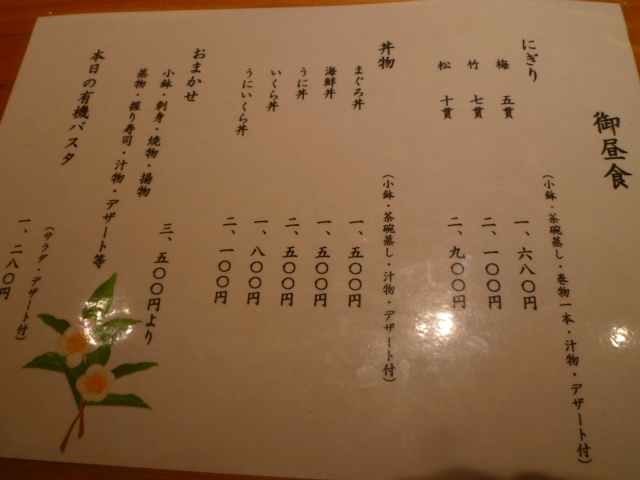 御昼食
にぎり
(小鉢・茶碗蒸し・巻物一本・汁物・デザート付)
梅 五貫 一、六八〇円
竹 七貫 二、一〇〇円
松 十貫 二、九〇〇円
丼物
(小鉢・茶碗蒸し・汁物・デザート付)
まぐろ丼 一、五〇〇円
海鮮丼 一、五〇〇円
うに丼 二、五〇〇円
いくら丼 一、八〇〇円
うにいくら丼 二、一〇〇円
おまかせ
小鉢・刺身・焼物・揚物
蒸物・握り寿司・汁物・デザート等
三、五〇〇円より
本日の有機パスタ
(サラダ・デザート付)
一、二八〇円